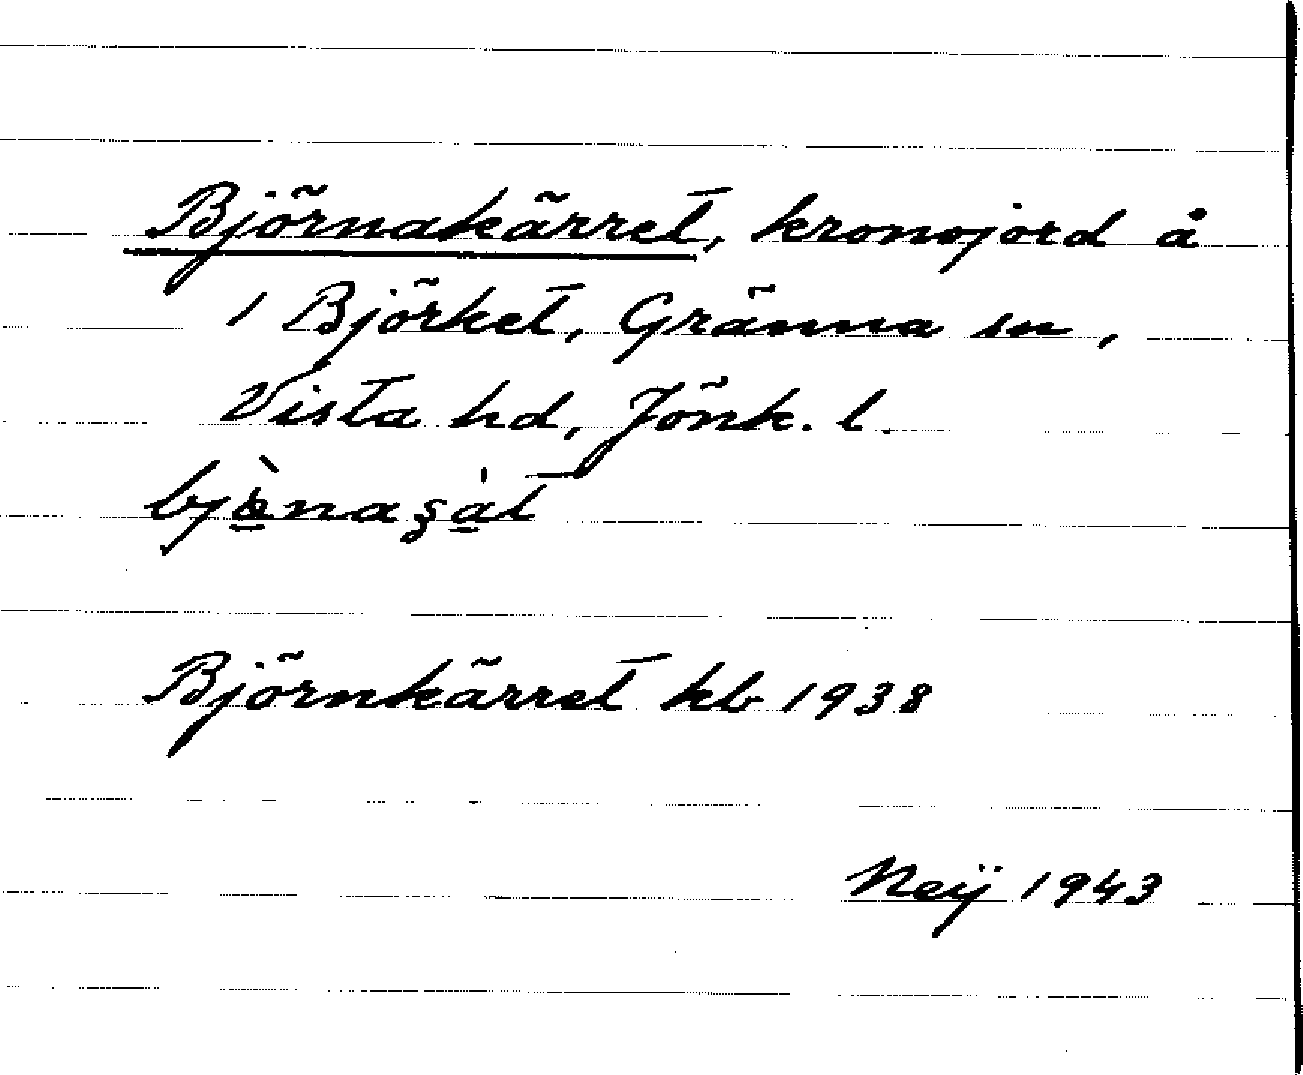 Björnakärret, kronojord å
1 Björket, Gränna sn,
Vista hd, Jönk. l.
Björnkärret kb 1938
Neij 1943